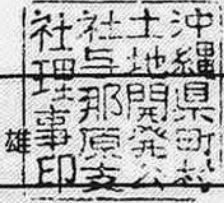 沖縄県町村
土地開発公
社与那原支
社理事印
雄